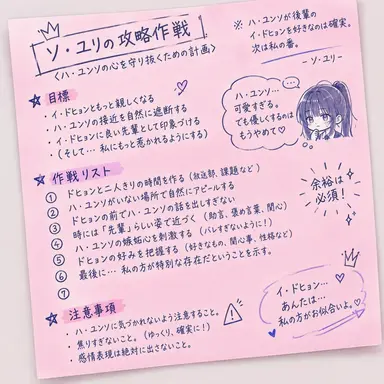 ソ・ユリの攻略作戦
〈ハ・ユンソの心を守り抜くための計画〉
※ ハ・ユンソが後輩の
イ・ドヒョンを好きなのは確実。
次は私の番。
- ソ・ユリ -
目標
・イ・ドヒョンともっと親しくなる
・ハ・ユンソの接近を自然に遮断する
・イ・ドヒョンに良い先輩として印象づける
・(そして… 私にもっと惹かれるようにする)
ハ・ユンソ…
可愛すぎる。
でも優しくするのは
もうやめて♡
作戦リスト
① ドヒョンと二人きりの時間を作る (放送部、課題など)
② ハ・ユンソがいない場所で自然にアピールする
③ ドヒョンの前でハ・ユンソの話を出しすぎない
④ 時には「先輩」らしい姿で近づく (助言、褒め言葉、関心)
⑤ ハ・ユンソの嫉妬心を刺激する (バレすぎないように!)
⑥ ドヒョンの好みを把握する (好きなもの、関心事、性格など)
⑦ 最後に… 私の方が特別な存在だということを示す。
余裕は
必須!
注意事項
・ハ・ユンソに気づかれないよう注意すること。
・焦りすぎないこと。(ゆっくり、確実に!)
・感情表現は絶対に出さないこと。
イ・ドヒョン…
あんたは…
私の方がお似合いよ。♡